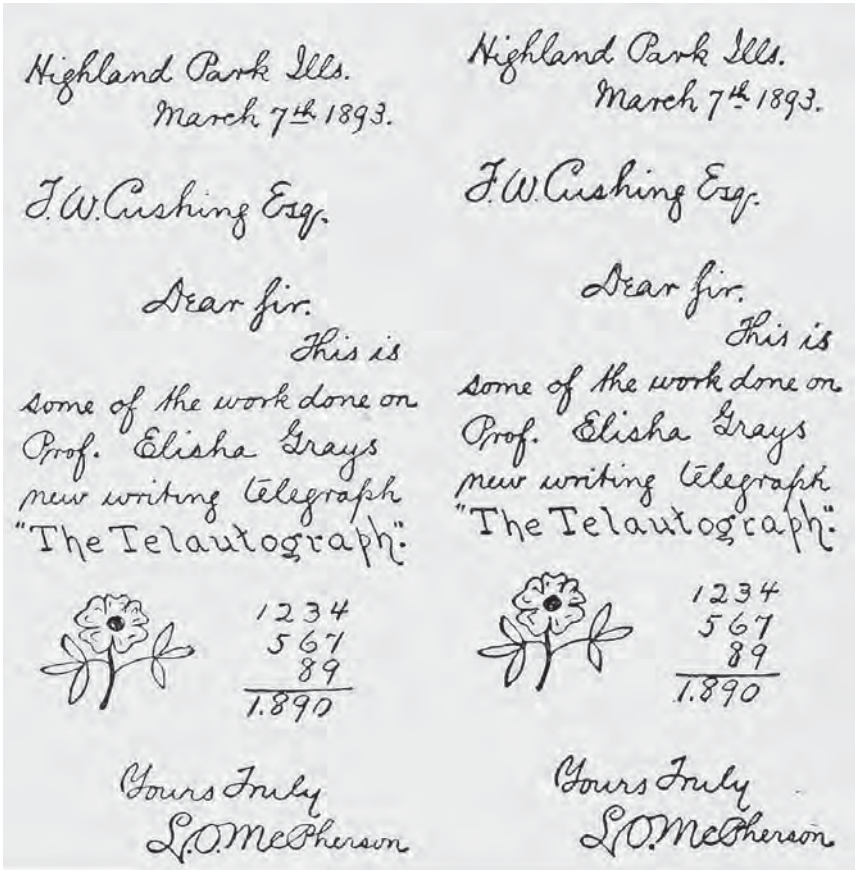 Highland Park Ills.
March 7th 1893.
F. W. Cushing Esq.
Dear Sir.
This is
some of the work done on
Prof. Elisha Grays
new writing telegraph
"The Telautograph".
1234
567
89
1.890
Yours Truly
L. O. McPherson
Highland Park Ills.
March 7th 1893.
F. W. Cushing Esq.
Dear Sir.
This is
some of the work done on
Prof. Elisha Grays
new writing telegraph
"The Telautograph".
1234
567
89
1.890
Yours Truly
L. O. McPherson